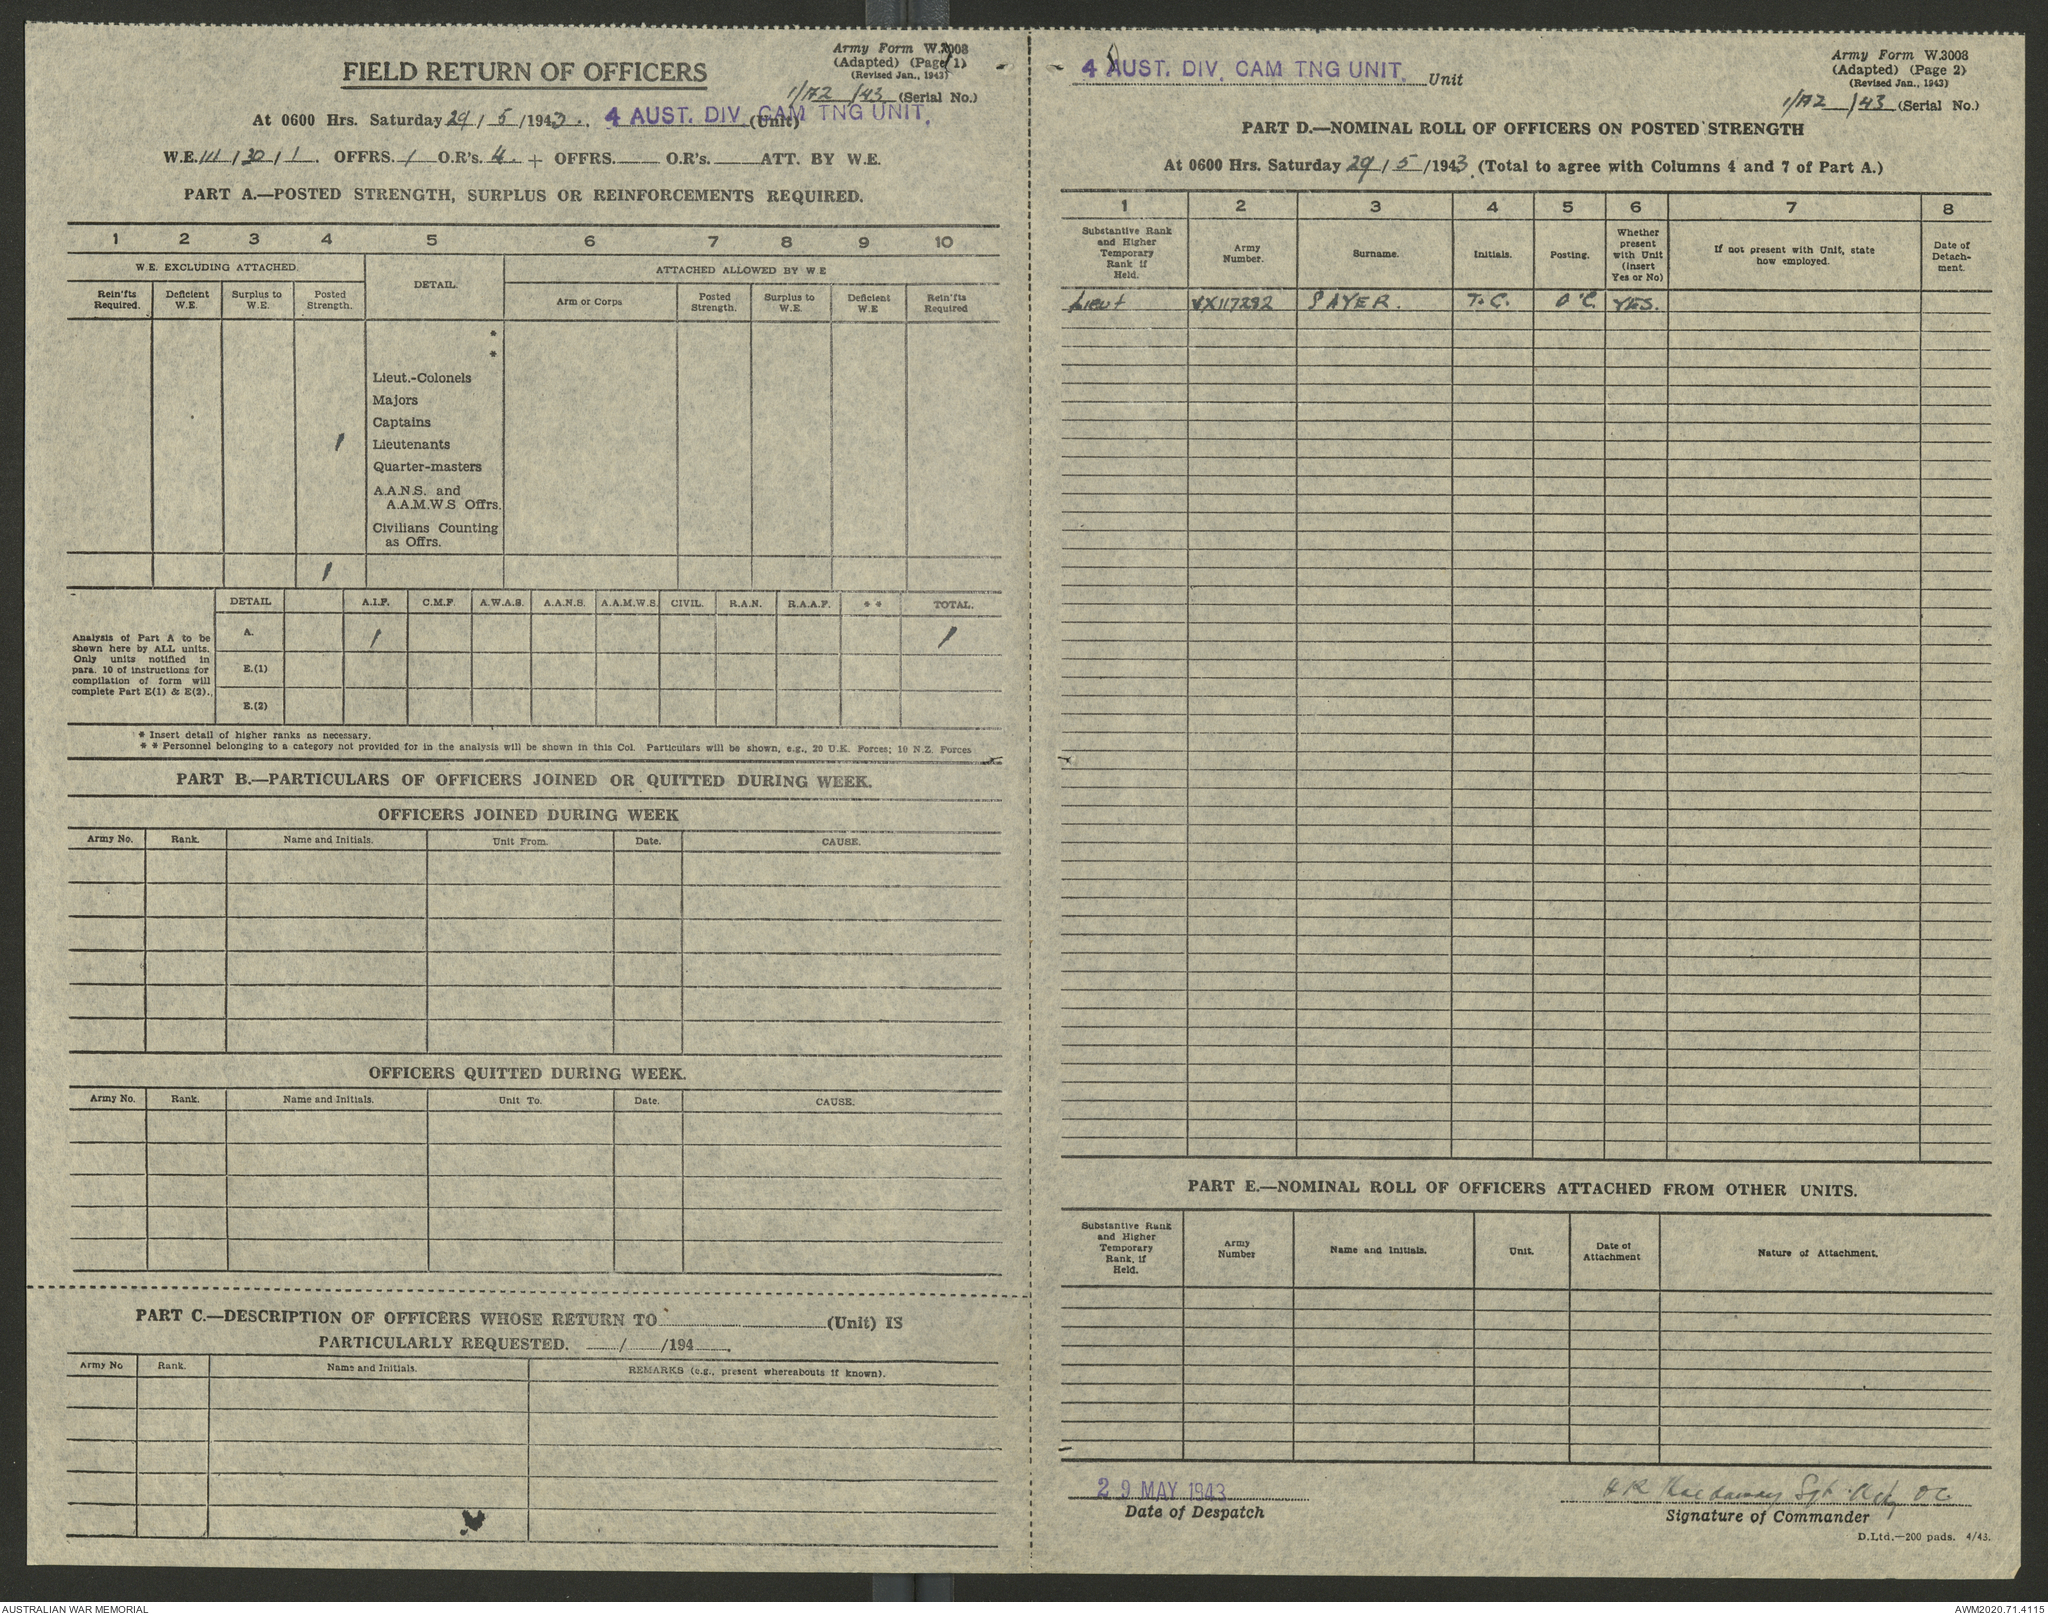 Army Form W.3008
(Adapted) (Page 1)
(Revised Jan., 1943)
FIELD RETURN OF OFFICERS
1/A2/43 (Serial No.)
At 0600 Hrs. Saturday 29/5/1943. 4 AUST. DIV. CAM TNG UNIT. (Unit)
W.E. III/30/1. OFFRS. 1 O.R's. 4. + OFFRS. O.R's. ATT. BY W.E.
PART A.—POSTED STRENGTH, SURPLUS OR REINFORCEMENTS REQUIRED.
1 2 3 4 5 6 7 8 9 10
W.E. EXCLUDING ATTACHED. DETAIL. ATTACHED ALLOWED BY W.E
Rein'fts Required. Deficient W.E. Surplus to W.E. Posted Strength. Arm or Corps Posted Strength. Surplus to W.E. Deficient W.E Rein'fts Required
*
*
Lieut.-Colonels
Majors
Captains
1 Lieutenants
Quarter-masters
A.A.N.S. and
A.A.M.W.S Offrs.
Civilians Counting
as Offrs.
1
DETAIL A.I.F. C.M.F. A.W.A.S. A.A.N.S. A.A.M.W.S. CIVIL. R.A.N. R.A.A.F. * * TOTAL.
Analysis of Part A to be
shown here by ALL units.
Only units notified in
para. 10 of instructions for
compilation of form will
complete Part E(1) & E(2).
A. 1 1
E.(1)
E.(2)
* Insert detail of higher ranks as necessary.
* * Personnel belonging to a category not provided for in the analysis will be shown in this Col. Particulars will be shown, e.g., 20 U.K. Forces; 10 N.Z. Forces
PART B.—PARTICULARS OF OFFICERS JOINED OR QUITTED DURING WEEK.
OFFICERS JOINED DURING WEEK
Army No. Rank. Name and Initials. Unit From. Date. CAUSE.
OFFICERS QUITTED DURING WEEK.
Army No. Rank. Name and Initials. Unit To. Date. CAUSE.
PART C.—DESCRIPTION OF OFFICERS WHOSE RETURN TO (Unit) IS
PARTICULARLY REQUESTED. / /194 .
Army No Rank. Name and Initials. REMARKS (e.g., present whereabouts if known).
4 AUST. DIV. CAM TNG UNIT. Unit
Army Form W.3008
(Adapted) (Page 2)
(Revised Jan., 1943)
1/A2/43 (Serial No.)
PART D.—NOMINAL ROLL OF OFFICERS ON POSTED STRENGTH
At 0600 Hrs. Saturday 29/5/1943. (Total to agree with Columns 4 and 7 of Part A.)
1 2 3 4 5 6 7 8
Substantive Rank and Higher Temporary Rank if Held. Army Number. Surname. Initials. Posting. Whether present with Unit (insert Yes or No) If not present with Unit, state how employed. Date of Detach-ment.
Lieut VX117282 SAYER. T.C. O.C. YES.
PART E.—NOMINAL ROLL OF OFFICERS ATTACHED FROM OTHER UNITS.
Substantive Rank and Higher Temporary Rank, if Held. Army Number Name and Initials. Unit. Date of Attachment Nature of Attachment.
29 MAY 1943
Date of Despatch
Sgt OC
Signature of Commander
D.Ltd.—200 pads. 4/43.
AUSTRALIAN WAR MEMORIAL
AWM2020.71.4115